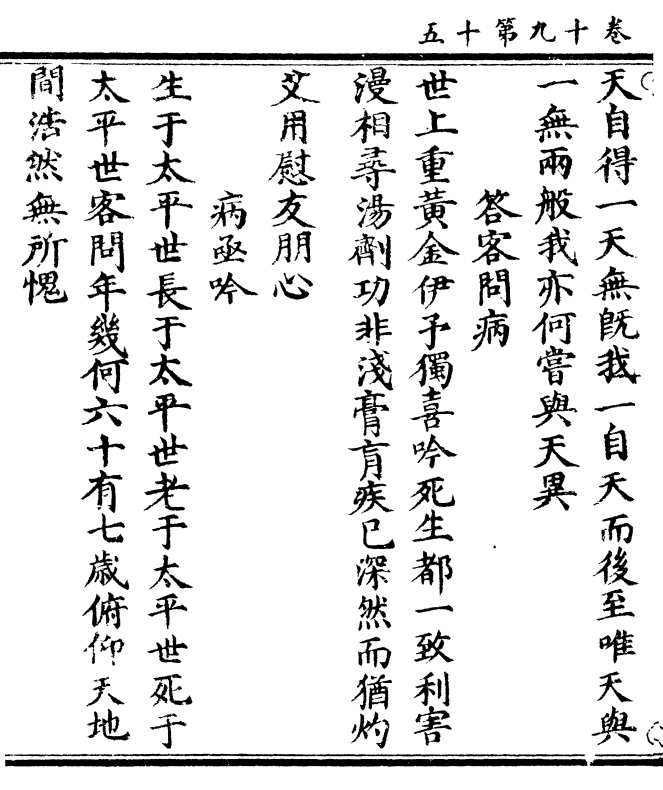 卷十九第十五
天自得一天無旣我一自天而後至唯天與
一無兩般我亦何嘗與天異
答客問病
世上重黃金伊予獨喜吟死生都一致利害
漫相尋湯劑功非淺膏肓疾已深然而猶灼
艾用慰友朋心
病亟吟
生于太平世長于太平世老于太平世死于
太平世客問年幾何六十有七歲俯仰天地
間浩然無所愧